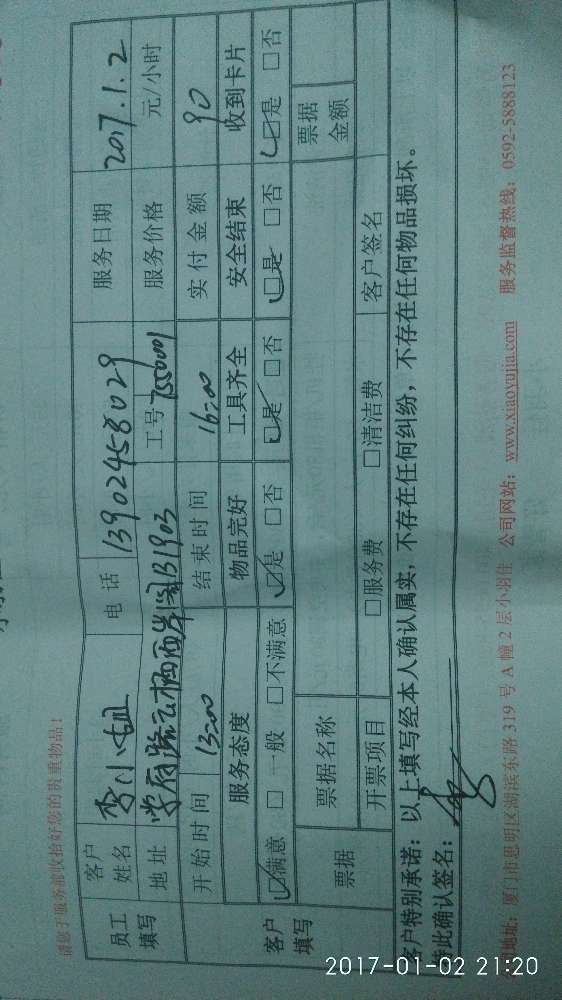 请您于服务前收拾好您的贵重物品！
员工填写 客户姓名 李小姐 电话 13902458029 服务日期 2017.1.2
地址 学府路云栖西岸阁B1903 工号 7550001 服务价格 元/小时
客户填写 开始时间 13:00 结束时间 16:00 实付金额 90
服务态度 物品完好 工具齐全 安全结束 收到卡片
☑满意 □一般 □不满意 ☑是 □否 ☑是 □否 ☑是 □否 ☑是 □否
票据 票据名称 票据金额
开票项目 □服务费 □清洁费 客户签名
客户特别承诺：以上填写经本人确认属实，不存在任何纠纷，不存在任何物品损坏。
特此确认签名：
地址：厦门市思明区湖滨东路 319 号 A 幢 2 层小羽佳 公司网站：www.xiaoyujia.com 服务监督热线：0592-5888123
2017-01-02 21:20